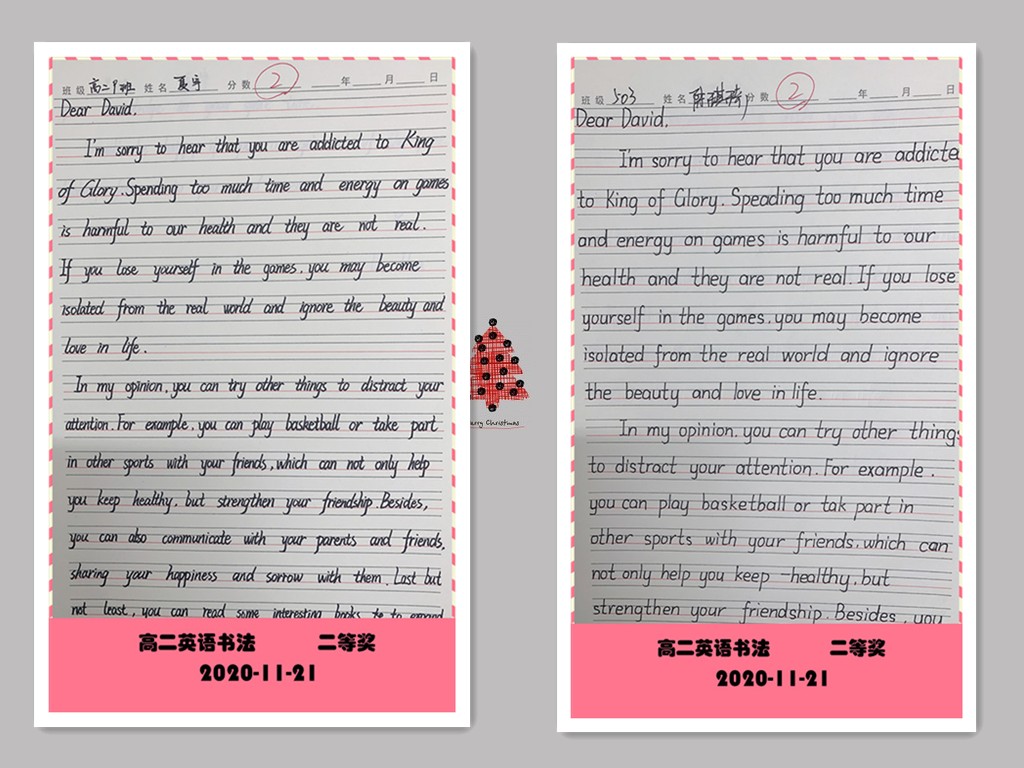 班级 高二9班 姓名 夏宇 分数 2 年 月 日
Dear David,
I'm sorry to hear that you are addicted to King
of Glory. Spending too much time and energy on games
is harmful to our health and they are not real.
If you lose yourself in the games, you may become
isolated from the real world and ignore the beauty and
love in life.
In my opinion, you can try other things to distract your
attention. For example, you can play basketball or take part
in other sports with your friends, which can not only help
you keep healthy, but strengthen your friendship. Besides,
you can also communicate with your parents and friends,
sharing your happiness and sorrow with them. Last but
not least, you can read some interesting books to expand
高二英语书法 二等奖
2020-11-21
Merry Christmas
班级 503 姓名 分数 2 年 月 日
Dear David,
I'm sorry to hear that you are addicte
to King of Glory. Speading too much time
and energy on games is harmful to our
health and they are not real. If you lose
yourself in the games, you may become
isolated from the real world and ignore
the beauty and love in life.
In my opinion, you can try other things
to distract your attention. For example,
you can play basketball or tak part in
other sports with your friends, which can
not only help you keep healthy, but
strengthen your friendship. Besides, you
高二英语书法 二等奖
2020-11-21